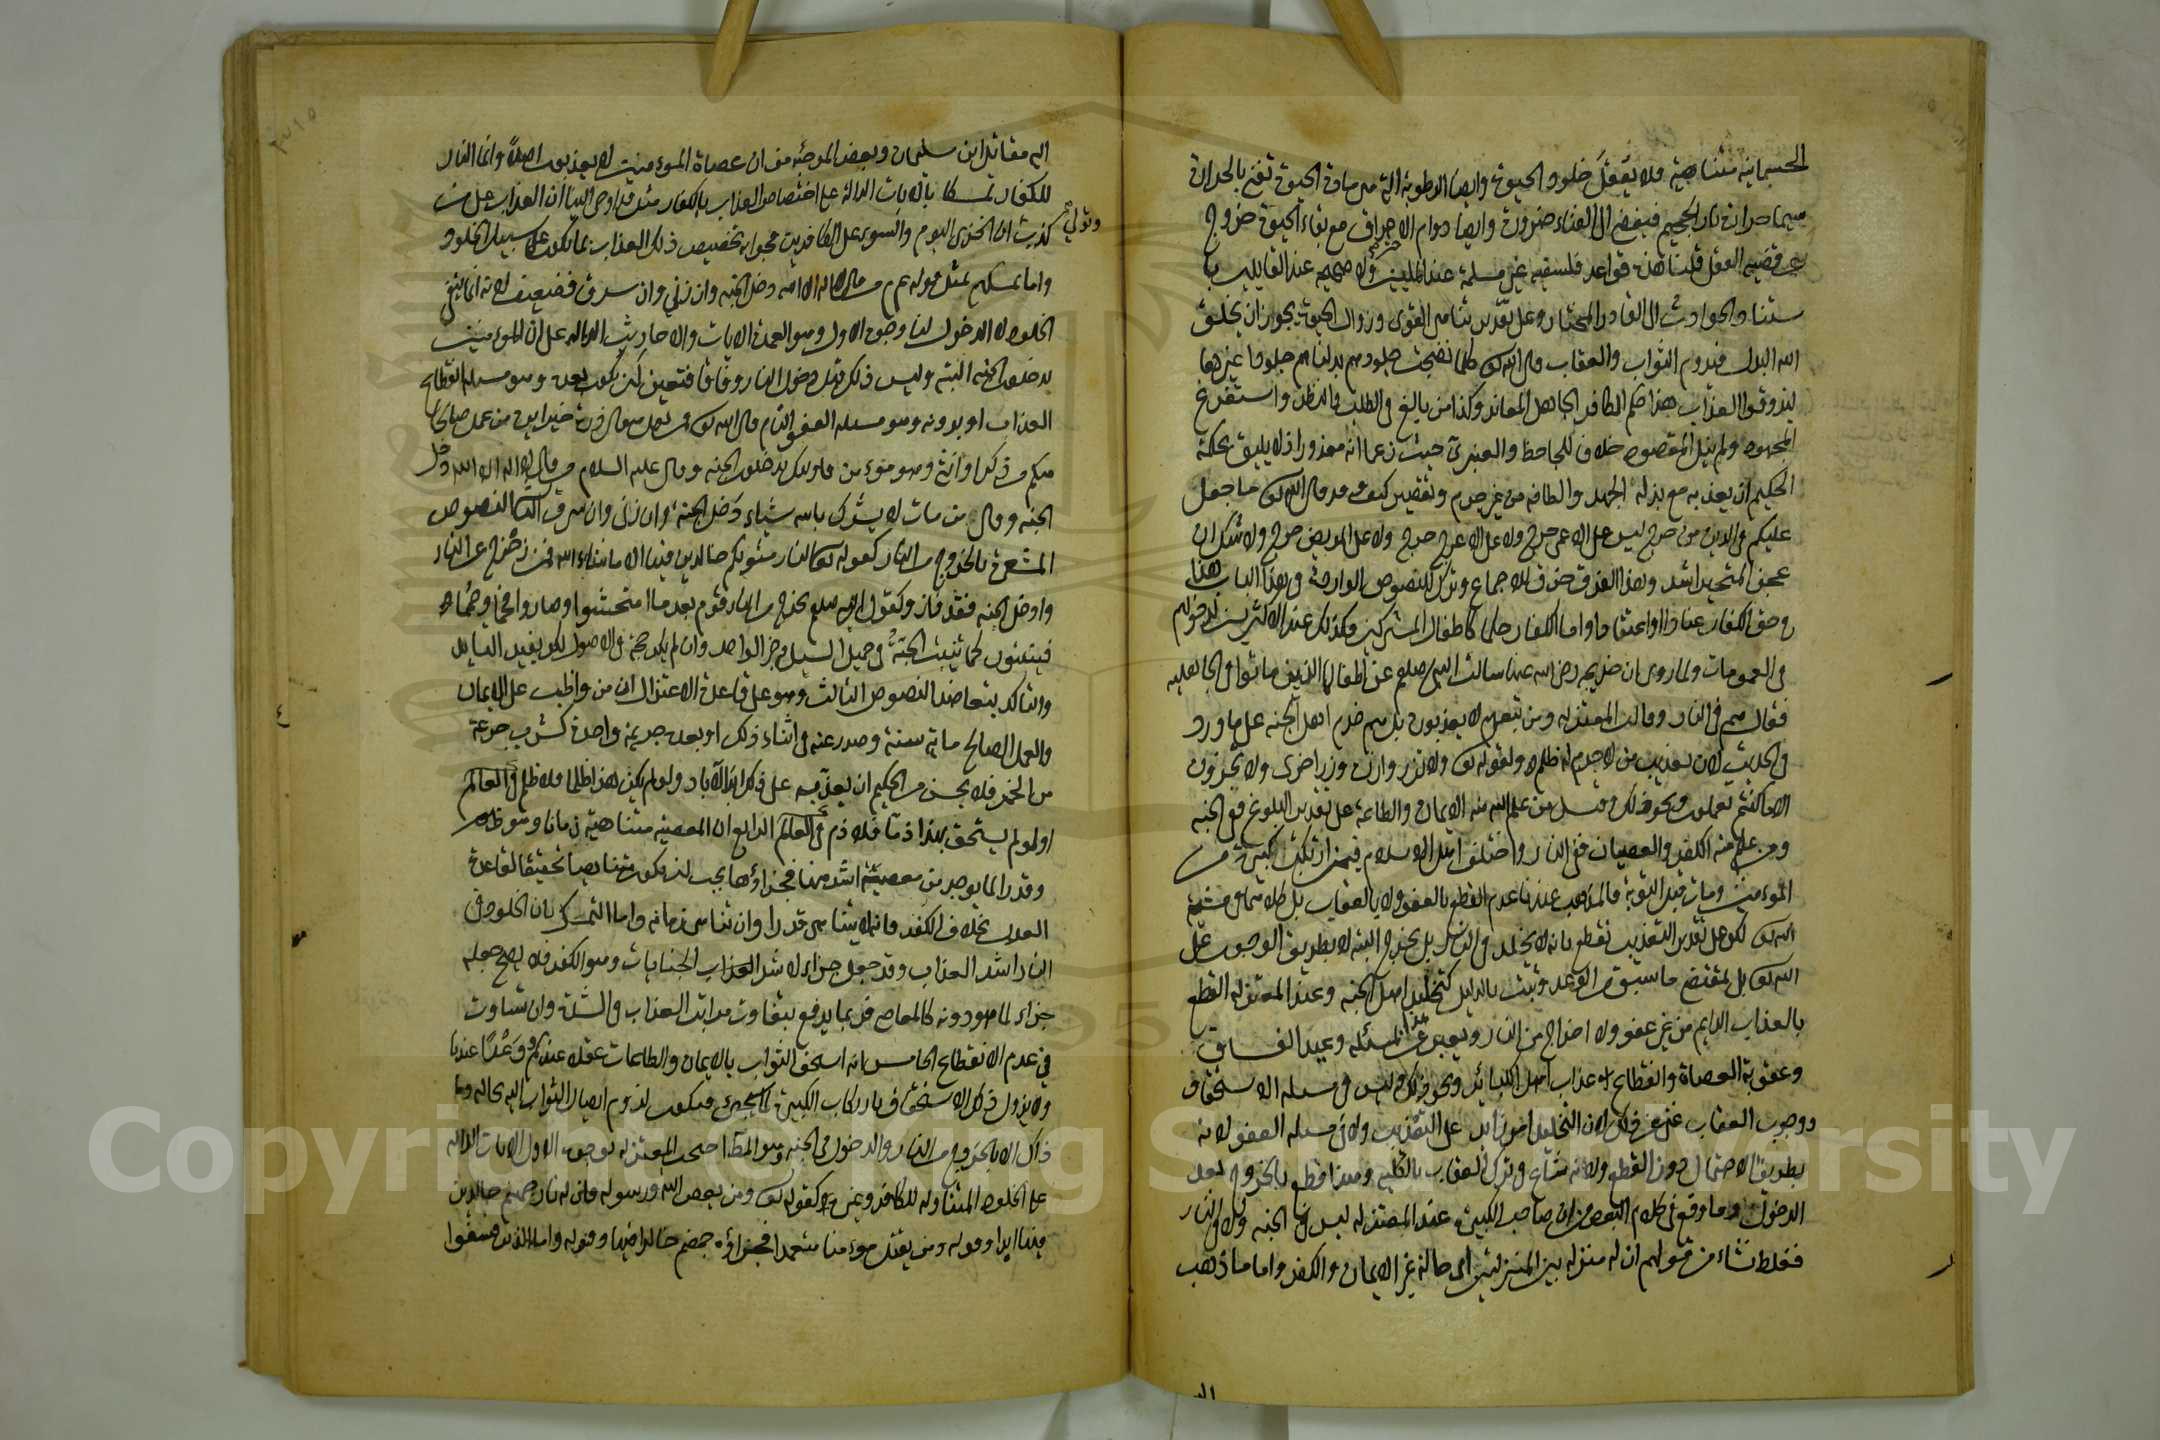 الجسمانية متناهية فلا يعقل خلود الحيوة وايضا الرطوبة التي هي مادة الحيوة تفنى بالحرارة
سيما حرارة نار الجحيم فيفضي الى الفناء ضرورة وايضا دوام الاحراق مع بقاء الحيوة خروج
عن قضية العقل قلنا هذه قواعد فلسفية غير مسلمة عند المليين ولا صحيحة عند القايلين با
ستناد الحوادث الى القادر المختار وعلى تقدير تناهى القوى وزوال الحيوة يجوز ان يخلق
الله البدل فيدوم الثواب والعقاب قال الله تعالى كلما نضجت جلودهم بدلناهم جلودا غيرها
ليذوقوا العذاب هذا حكم الكافر الجاهل المعاند وكذا من بالغ فى الطلب والنظر واستفرغ
المجهود ولم ينل المقصود خلافا للجاحظ والعنبرى حيث زعما انه معذور اذ لا يليق بحكمة
الحكيم ان يعذبه مع بذله الجهد والطاقة من غير جرم وتقصير كيف وقد قال الله تعالى ما جعل
عليكم فى الدين من حرج ليس على الاعمى حرج ولا على الاعرج حرج ولا على المريض حرج ولا شك ان
عجز المتحير اشد وهذا الفرق خرق للاجماع وترك للنصوص الواردة فى هذا الباب هذا
فى حق الكفار عنادا او اعتقادا واما الكفار حكما كاطفال المشركين فكذلك عند الاكثرين لدخولهم
فى العمومات ولما روى ان خديجة رضى الله عنها سالت النبى صلعم عن اطفالها الذين ماتوا فى الجاهلية
فقال هم فى النار وقالت المعتزلة ومن تبعهم لا يعذبون بل هم خدم اهل الجنة على ما ورد
فى الحديث لان تعذيب من لا جرم له ظلم ولقوله تعالى ولا تزر وازرة وزر اخرى ولا تجزون
الا ما كنتم تعملون ونحو ذلك وقيل من علم الله منه الايمان والطاعة على تقدير البلوغ ففى الجنة
ومن علم منه الكفر والعصيان ففى النار واختلف اهل الاسلام فيمن ارتكب كبيرة من
المؤمنين ومات قبل التوبة فالمذهب عندنا عدم القطع بالعفو ولا بالعقاب بل كلاهما فى مشية
الله تعالى لكن على تقدير التعذيب نقطع بانه لا يخلد فى النار بل يخرج البتة لا بطريق الوجوب على
الله تعالى بل بمقتضى ما سبق من الوعد وثبت بالدليل كتخليد اهل الجنة وعند المعتزلة القطع
بالعذاب الدايم من غير عفو ولا اخراج من النار ويعبر عن هذا بمسئلة وعيد الفساق
وعقوبة العصاة وانقطاع عذاب اهل الكبائر ونحو ذلك وليس فى مسئلة الاستحقاق
ووجوب العقاب غنى عن ذلك لان التخليد امر زائد على التعذيب ولا فى مسئلة العفو لانه
بطريق الاحتمال دون القطع ولانه شاع فى ترك العقاب بالكلية وهذا قطع بالخروج بعد
الدخول وما وقع فى كلام البعض من ان صاحب الكبيرة عند المعتزلة ليس فى الجنة ولا فى النار
فغلط نشاء من قولهم ان له منزلة بين المنزلتين اى حالة غير الايمان والكفر واما ما ذهب
اليه
اليه مقاتل ابن سليمان وبعض المرجئة من ان عصاة المؤمنين لا يعذبون اصلا وانما النار
للكفار تمسكا بالايات الدالة على اختصاص العذاب بالكفار مثل قد اوحى الينا ان العذاب على من
كذب وتولى ان الخزى اليوم والسوء على الكافرين فجوابه تخصيص ذلك العذاب بما يكون على سبيل الخلود
واما تمسكهم بمثل قوله عم من قال لا اله الا الله دخل الجنة وان زنى وان سرق فضعيف لانه انما ينفى
الخلود لا الدخول لنا وجوه الاول وهو العمدة الايات والاحاديث الدالة على ان المؤمنين
يدخلون الجنة البتة وليس ذلك قبل دخول النار وفاقا فتعين ان يكون بعده وهو مسئلة انقطاع
العذاب او بدونه وهو مسئلة العفو التام قال الله تعالى فمن يعمل مثقال ذرة خيرا يره من عمل صالحا
منكم من ذكر او انثى وهو مؤمن فاولئك يدخلون الجنة وقال عليه السلام من قال لا اله الا الله دخل
الجنة وقال من مات لا يشرك بالله شياء دخل الجنة وان زنى وان سرق الثانى النصوص
المشعرة بالخروج من النار كقوله تعالى النار مثويكم خالدين فيها الا ما شاء الله فمن زحزح عن النار
وادخل الجنة فقد فاز وكقول النبى صلعم يخرج من النار قوم بعد ما امتحشوا وصاروا فحما وحمما
فينبتون كما تنبت الحبة فى حميل السيل وخبر الواحد وان لم يكن حجة فى الاصول لكن يفيد التاييد
والتاكيد بتعاضد النصوص الثالث وهو على قاعدة الاعتزال ان من واظب على الايمان
والعمل الصالح ماية سنة وصدر عنه فى اثناء ذلك او بعده جريمة واحدة كشرب جرعة
من الخمر فلا يحسن من الحكيم ان يعذبه على ذلك ابد الآباد ولو لم يكن هذا ظلما فلا ظلم فى العالم
او لو لم يستحق بهذا ذما فلا ذم فى العالم الرابع ان المعصية متناهية زمانا وهو ظاهر
وقدرا لما يوجد من معصية اشد منها فجزاؤها يجب ان يكون متناهيا تحقيقا لقاعدة
العدل بخلاف الكفر فانه لا يتناهى قدرا وان تناهى زمانه واما التمسك بان الخلود فى
النار اشد العذاب وقد جعل جزاء لاشد الجنايات وهو الكفر فلا يصح جعله
جزاء لما هو دونه كالمعاصى فربما يدفع بتفاوت مراتب العذاب فى الشدة وان تساوت
فى عدم الانقطاع الخامس انه استحق الثواب بالايمان والطاعات عقلا عندكم ووعدا عندنا
ولا يزول ذلك الاستحقاق بارتكاب الكبيرة لما سيجئ فيكون لزوم ايصال الثواب اليه بحاله وما
ذاك الا بالخروج من النار والدخول فى الجنة وهو المط احتجت المعتزلة بوجوه الاول الايات الدالة
على الخلود المتناولة للكافر وغيره كقوله تعالى ومن يعص الله ورسوله فان له نار جهنم خالدين
فيها ابدا وقوله ومن يقتل مؤمنا متعمدا فجزاؤه جهنم خالدا فيها وقوله واما الذين فسقوا